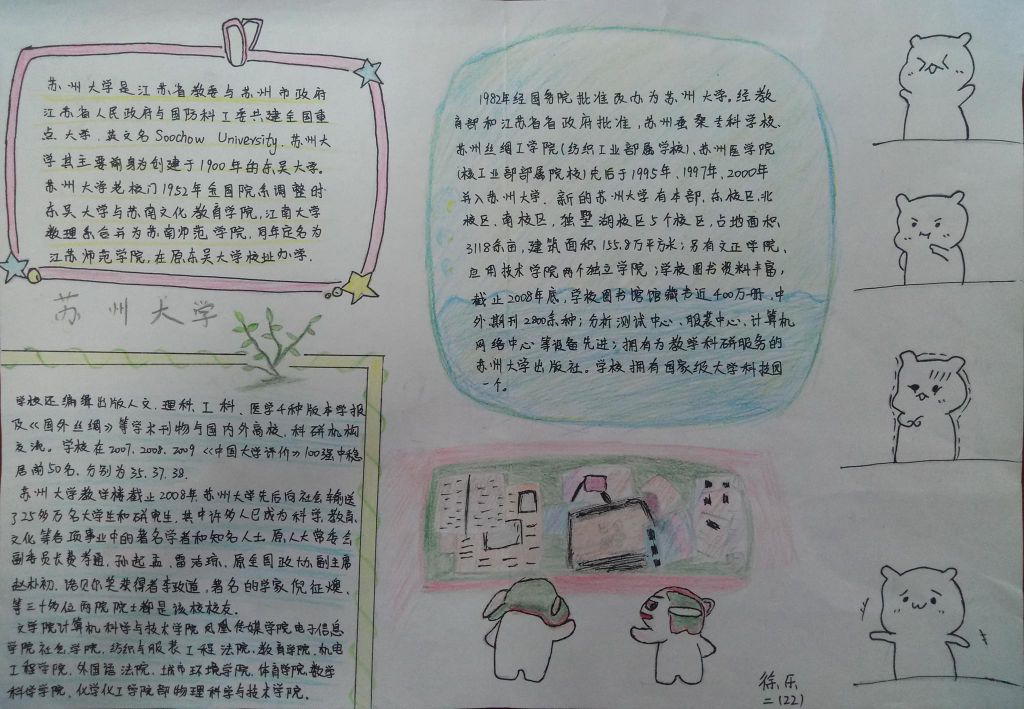 苏州大学是江苏省教委与苏州市政府
江苏省人民政府与国防科工委共建全国重点
大学.英文名Soochow University.苏州大
学其主要前身为创建于1900年的东吴大学。
苏州大学老校门1952年全国院系调整时
东吴大学与苏南文化教育学院,江南大学
数理系合并为苏南师范学院,同年定名为
江苏师范学院,在原东吴大学校址办学.
苏州大学
学校还编缉出版人文.理科.工科、医学4种版本学报
及《国外丝绸》等学术刊物与国内外高校.科研机构
交流。学校在2007、2008、2009《中国大学评价》100强中稳
居前50名.分别为35.37.38.
苏州大学教学楼截止2008年苏州大学先后向社会输送
了25多万名大学生和研究生,其中许多人已成为科学.教育.
文化等各项事业中的著名学者和知名人士.原人大常委会
副委员长费孝通,孙起孟、雷洁琼、原全国政协副主席
赵朴初.诺贝尔奖获得者李政道,著名的学家倪征燠.
等三十多位两院院士都是该校校友.
文学院计算机科学与技术学院凤凰传媒学院电子信息
学院社会学院.纺织与服装工程法院.教育学院.机电
工程学院.外国语法院.城市环境学院.体育学院.数学
科学学院.化学化工学院部物理科学与技术学院.
1982年经国务院批准改办为苏州大学。经教
育部和江苏省省政府批准,苏州蚕桑专科学校.
苏州丝绸工学院(纺织工业部属学校)、苏州医学院
(核工业部部属院校)先后于1995年、1997年、2000年
并入苏州大学.新的苏州大学有本部,东校区,北
校区.南校区,独墅湖校区5个校区,占地面积
3118余亩,建筑面积155.8万平方米;另有文正学院、
应用技术学院两个独立学院;学校图书资料丰富,
截止2008年底,学校图书馆馆藏书近400万册,中
外期刊2800余种;分析测试中心、服装中心、计算机
网络中心等设备先进;拥有为教学科研服务的
苏州大学出版社。学校拥有国家级大学科技园
一个。
徐乐
二(22)